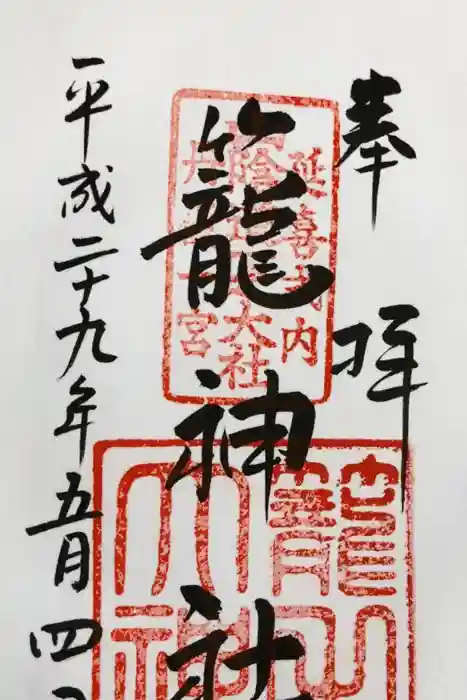 奉拝
籠神社
平成二十九年五月四日
延喜式内
山陰道一大社
丹後一宮